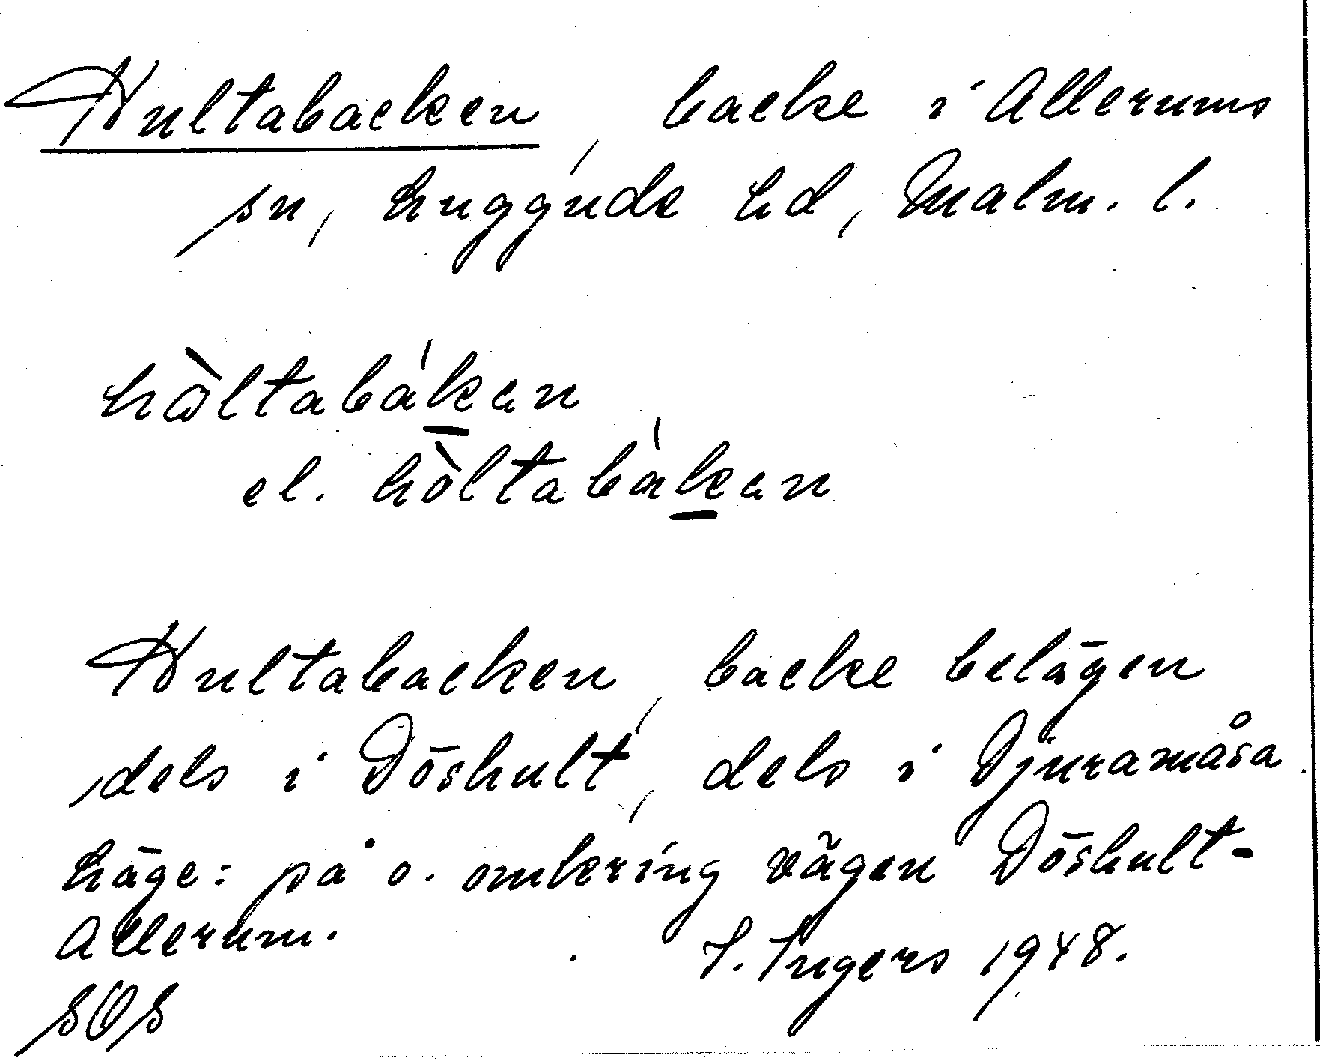 Hultabacken, backe i Allerums
sn, Luggude hd, Malm. l.
hòltabák̲an
el. hòltabák̲an
Hultabacken, backe belägen
dels i Döshult, dels i Djuramåsa
Läge: på o. omkring vägen Döshult-
Allerum.
I. Ingers 1948.
SOS